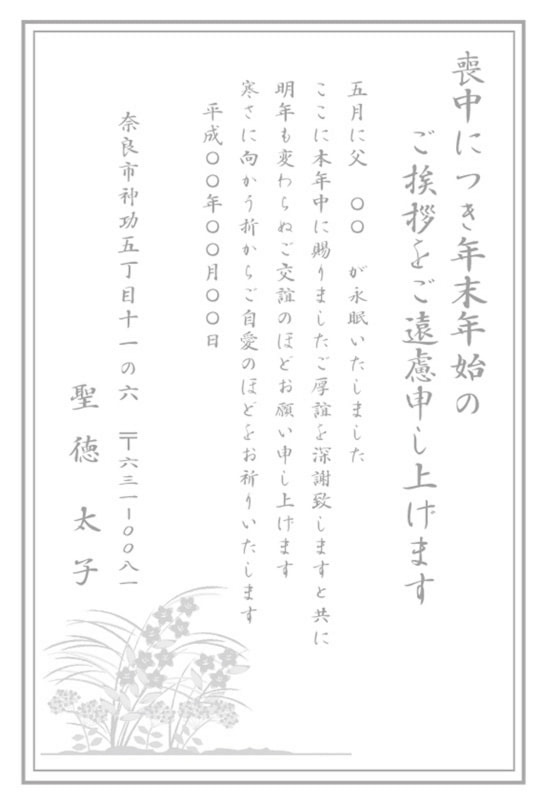 喪中につき年末年始の
ご挨拶をご遠慮申し上げます
五月に父　〇〇　が永眠いたしました
ここに本年中に賜りましたご厚誼を深謝致しますと共に
明年も変わらぬご交誼のほどお願い申し上げます
寒さに向かう折からご自愛のほどをお祈りいたします
平成〇〇年〇〇月〇〇日
奈良市神功五丁目十一の六　〒六三一-〇〇八一
聖徳　太子